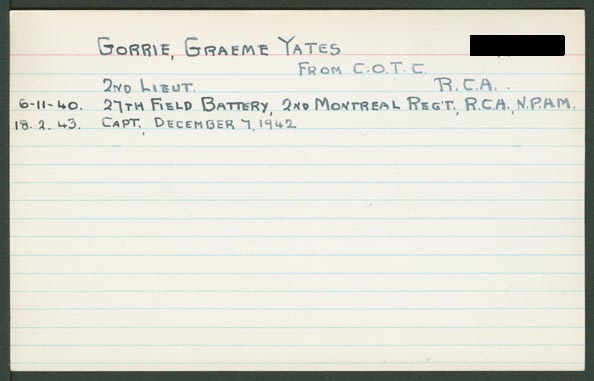 GORRIE, GRAEME YATES
FROM C.O.T.C.
2ND LIEUT. R.C.A..
6-11-40. 27TH FIELD BATTERY, 2ND MONTREAL REG'T, R.C.A., N.P.A.M.
18.2.43. CAPT., DECEMBER 7, 1942